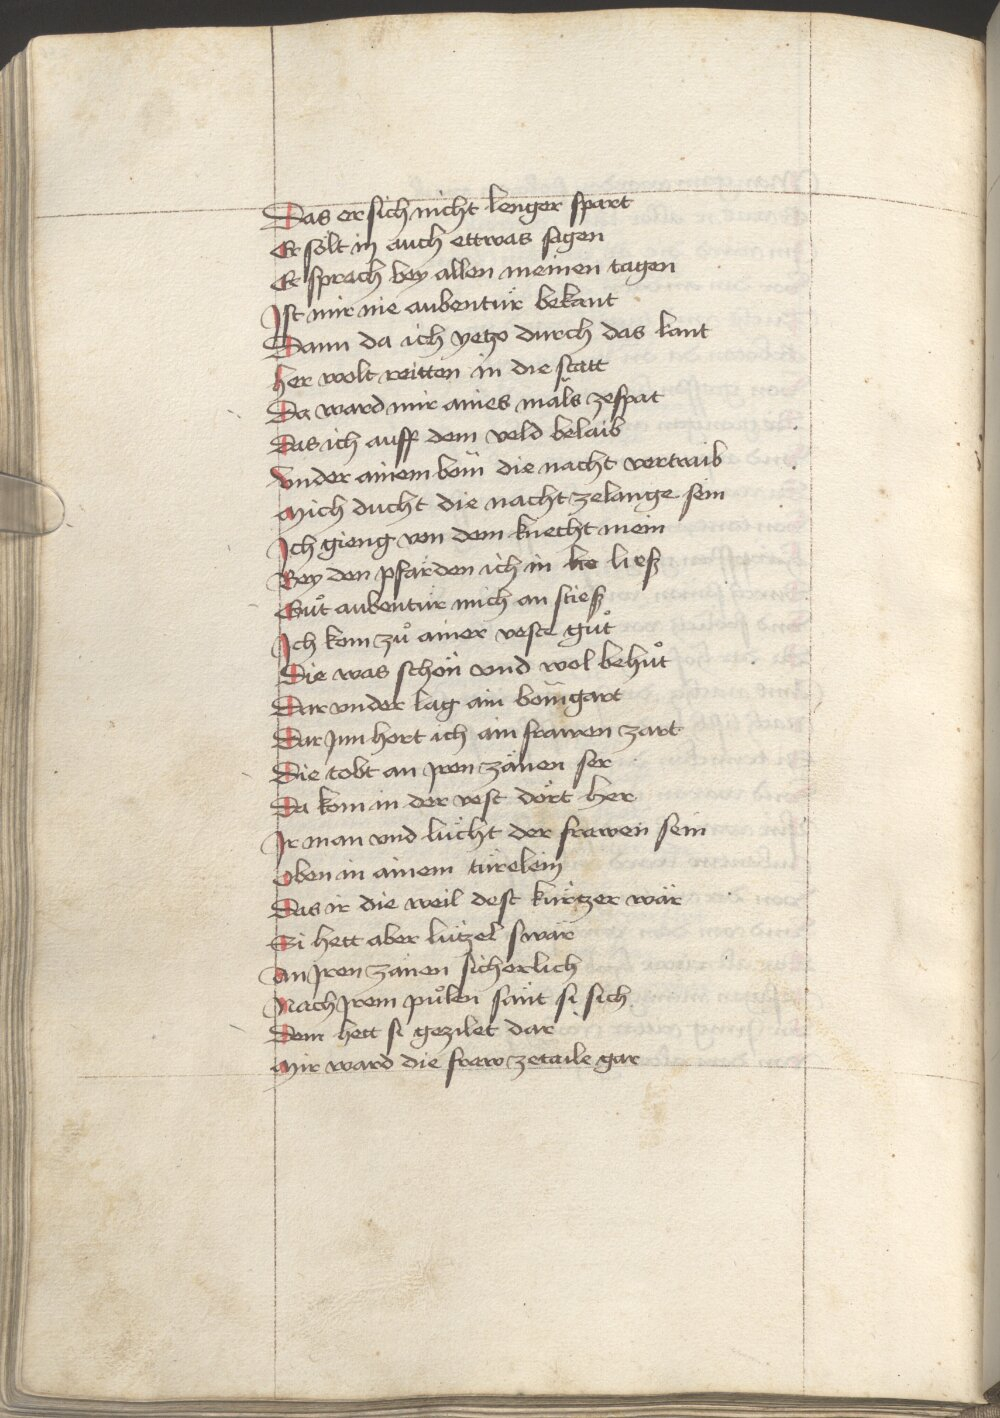 Das er sich nicht lenger spart
Er sölt in auch ettwas sagen
Er sprach bey allen meinen tagen
Ist mir nie aubentür bekant
Dann da ich yetzo durch das lant
her wolt reitten in die statt
Da ward mir aines mäls zespat
Das ich auff dem veld belaib
Vnder ainem bom die nacht vertraib
Mich ducht die nacht zelange sein
Ich gieng von dem knecht mein
Bey den pfärden ich in lie ließ
Gůt aubentür mich an stieß
Ich kom zů ainer veste gůt
Die was schön vnd wol behůt
Dar vnder lag ain bomgart
Dar Jnn hort ich ain frawen zart
Die tobt an Jren zänen ser
Da kom in der vest dört her
Ir man vnd lücht der frawen sein
Oben in ainem türelein
Das ir die weil dest kürtzer wär
Si hett aber lützel swär
An Jren zänen sicherlich
Nach Jrem půlen sänt si sich
Dem hett si gezilet dar
Mir ward die fraw zetaile gar